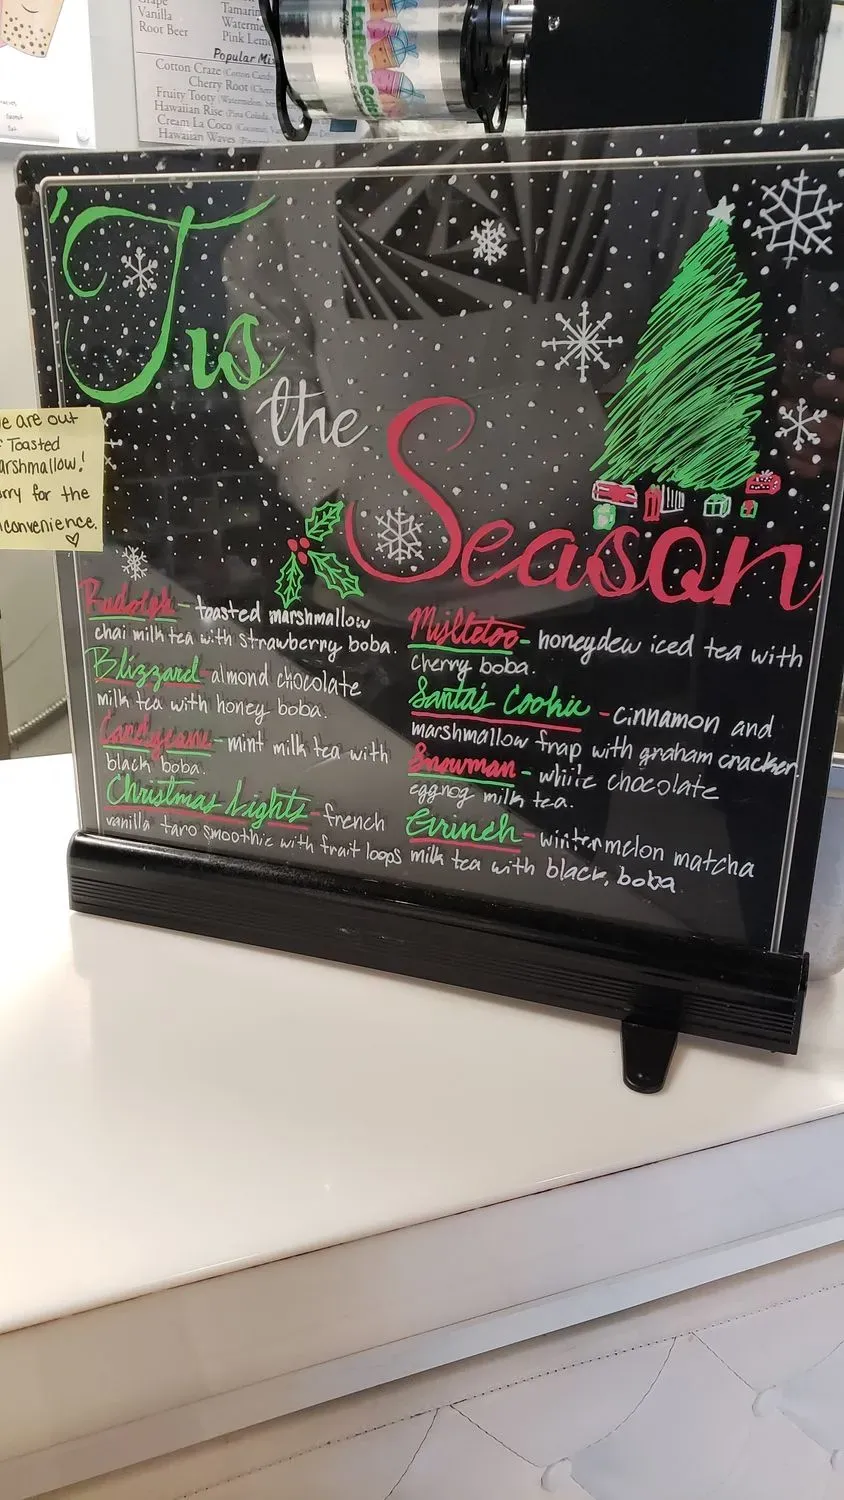 Vanilla
Root Beer
Pink Lem
Popular Mix
Cotton Craze (Cotton Candy
Cherry Root (Cher
Fruity Tooty (Watermelon,
Hawaiian Rise (Pina Colada,
Cream La Coco (Coconut,
Hawaiian Waves
'Tis
the
Season
e are out
Toasted
arshmallow!
rry for the
convenience.
Rudolph - toasted marshmallow
chai milk tea with strawberry boba.
Blizzard - almond chocolate
milk tea with honey boba.
Candycane - mint milk tea with
black boba.
Christmas Lights - french
vanilla taro smoothie with fruit loops
Mylletoe - honeydew iced tea with
cherry boba.
Santa's Cookie - cinnamon and
marshmallow frap with graham cracker.
Snowman - white chocolate
eggnog milk tea.
Grinch - wintermelon matcha
milk tea with black boba